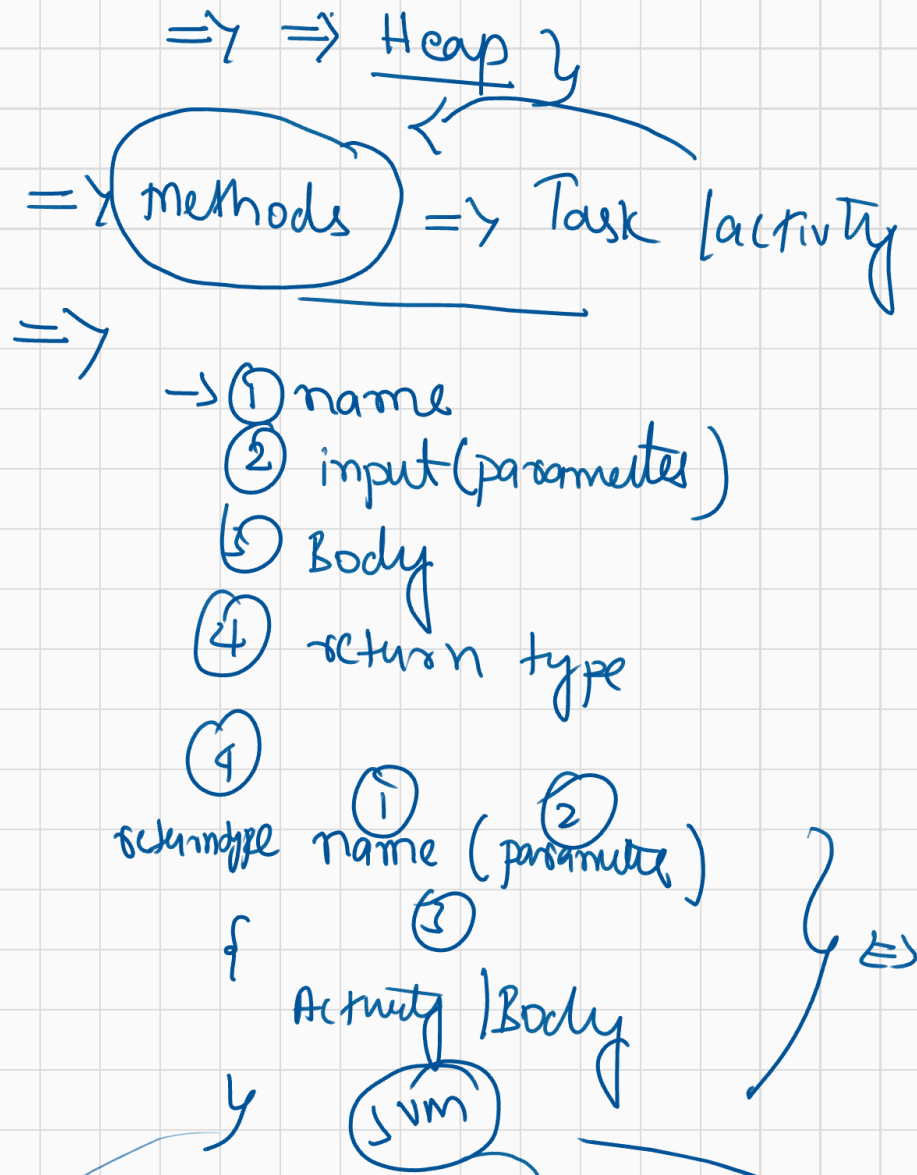 => => Heap }
=> methods => Task /activity
=>
-> ① name
② input (parameters)
③ Body
④ return type
④ ① ②
returntype name (parameter) } =>
{ ③
Activity /Body
}
JVM